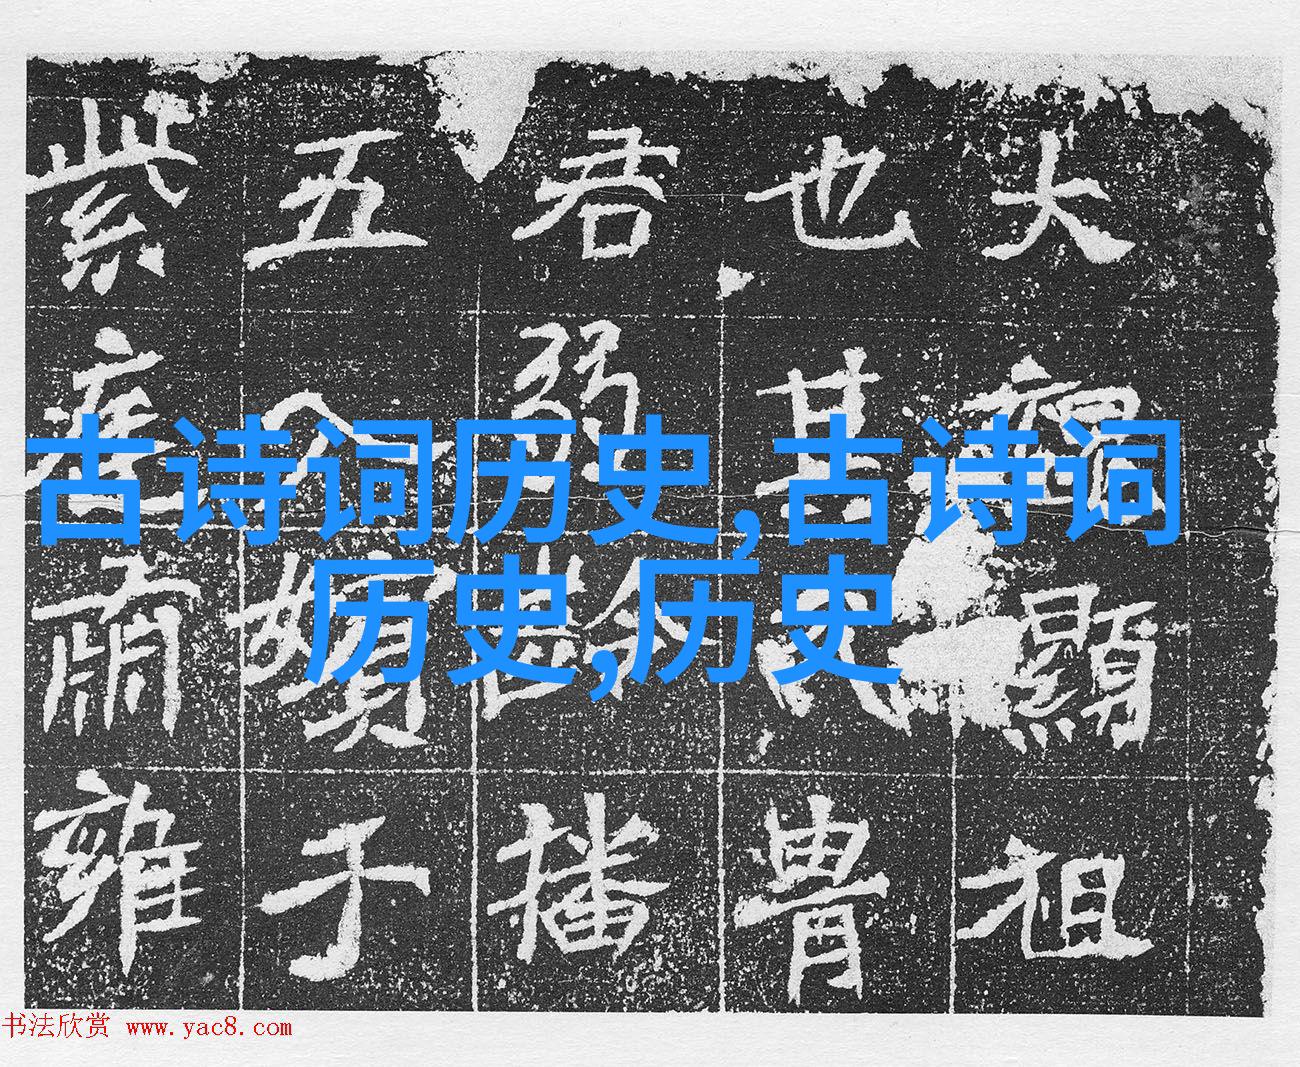 大顯祖
也其胄
君弱播
五入嬪于
紫庭肅雍
古诗词历史,古诗词
历史,历史
书法欣赏 www.yac8.com